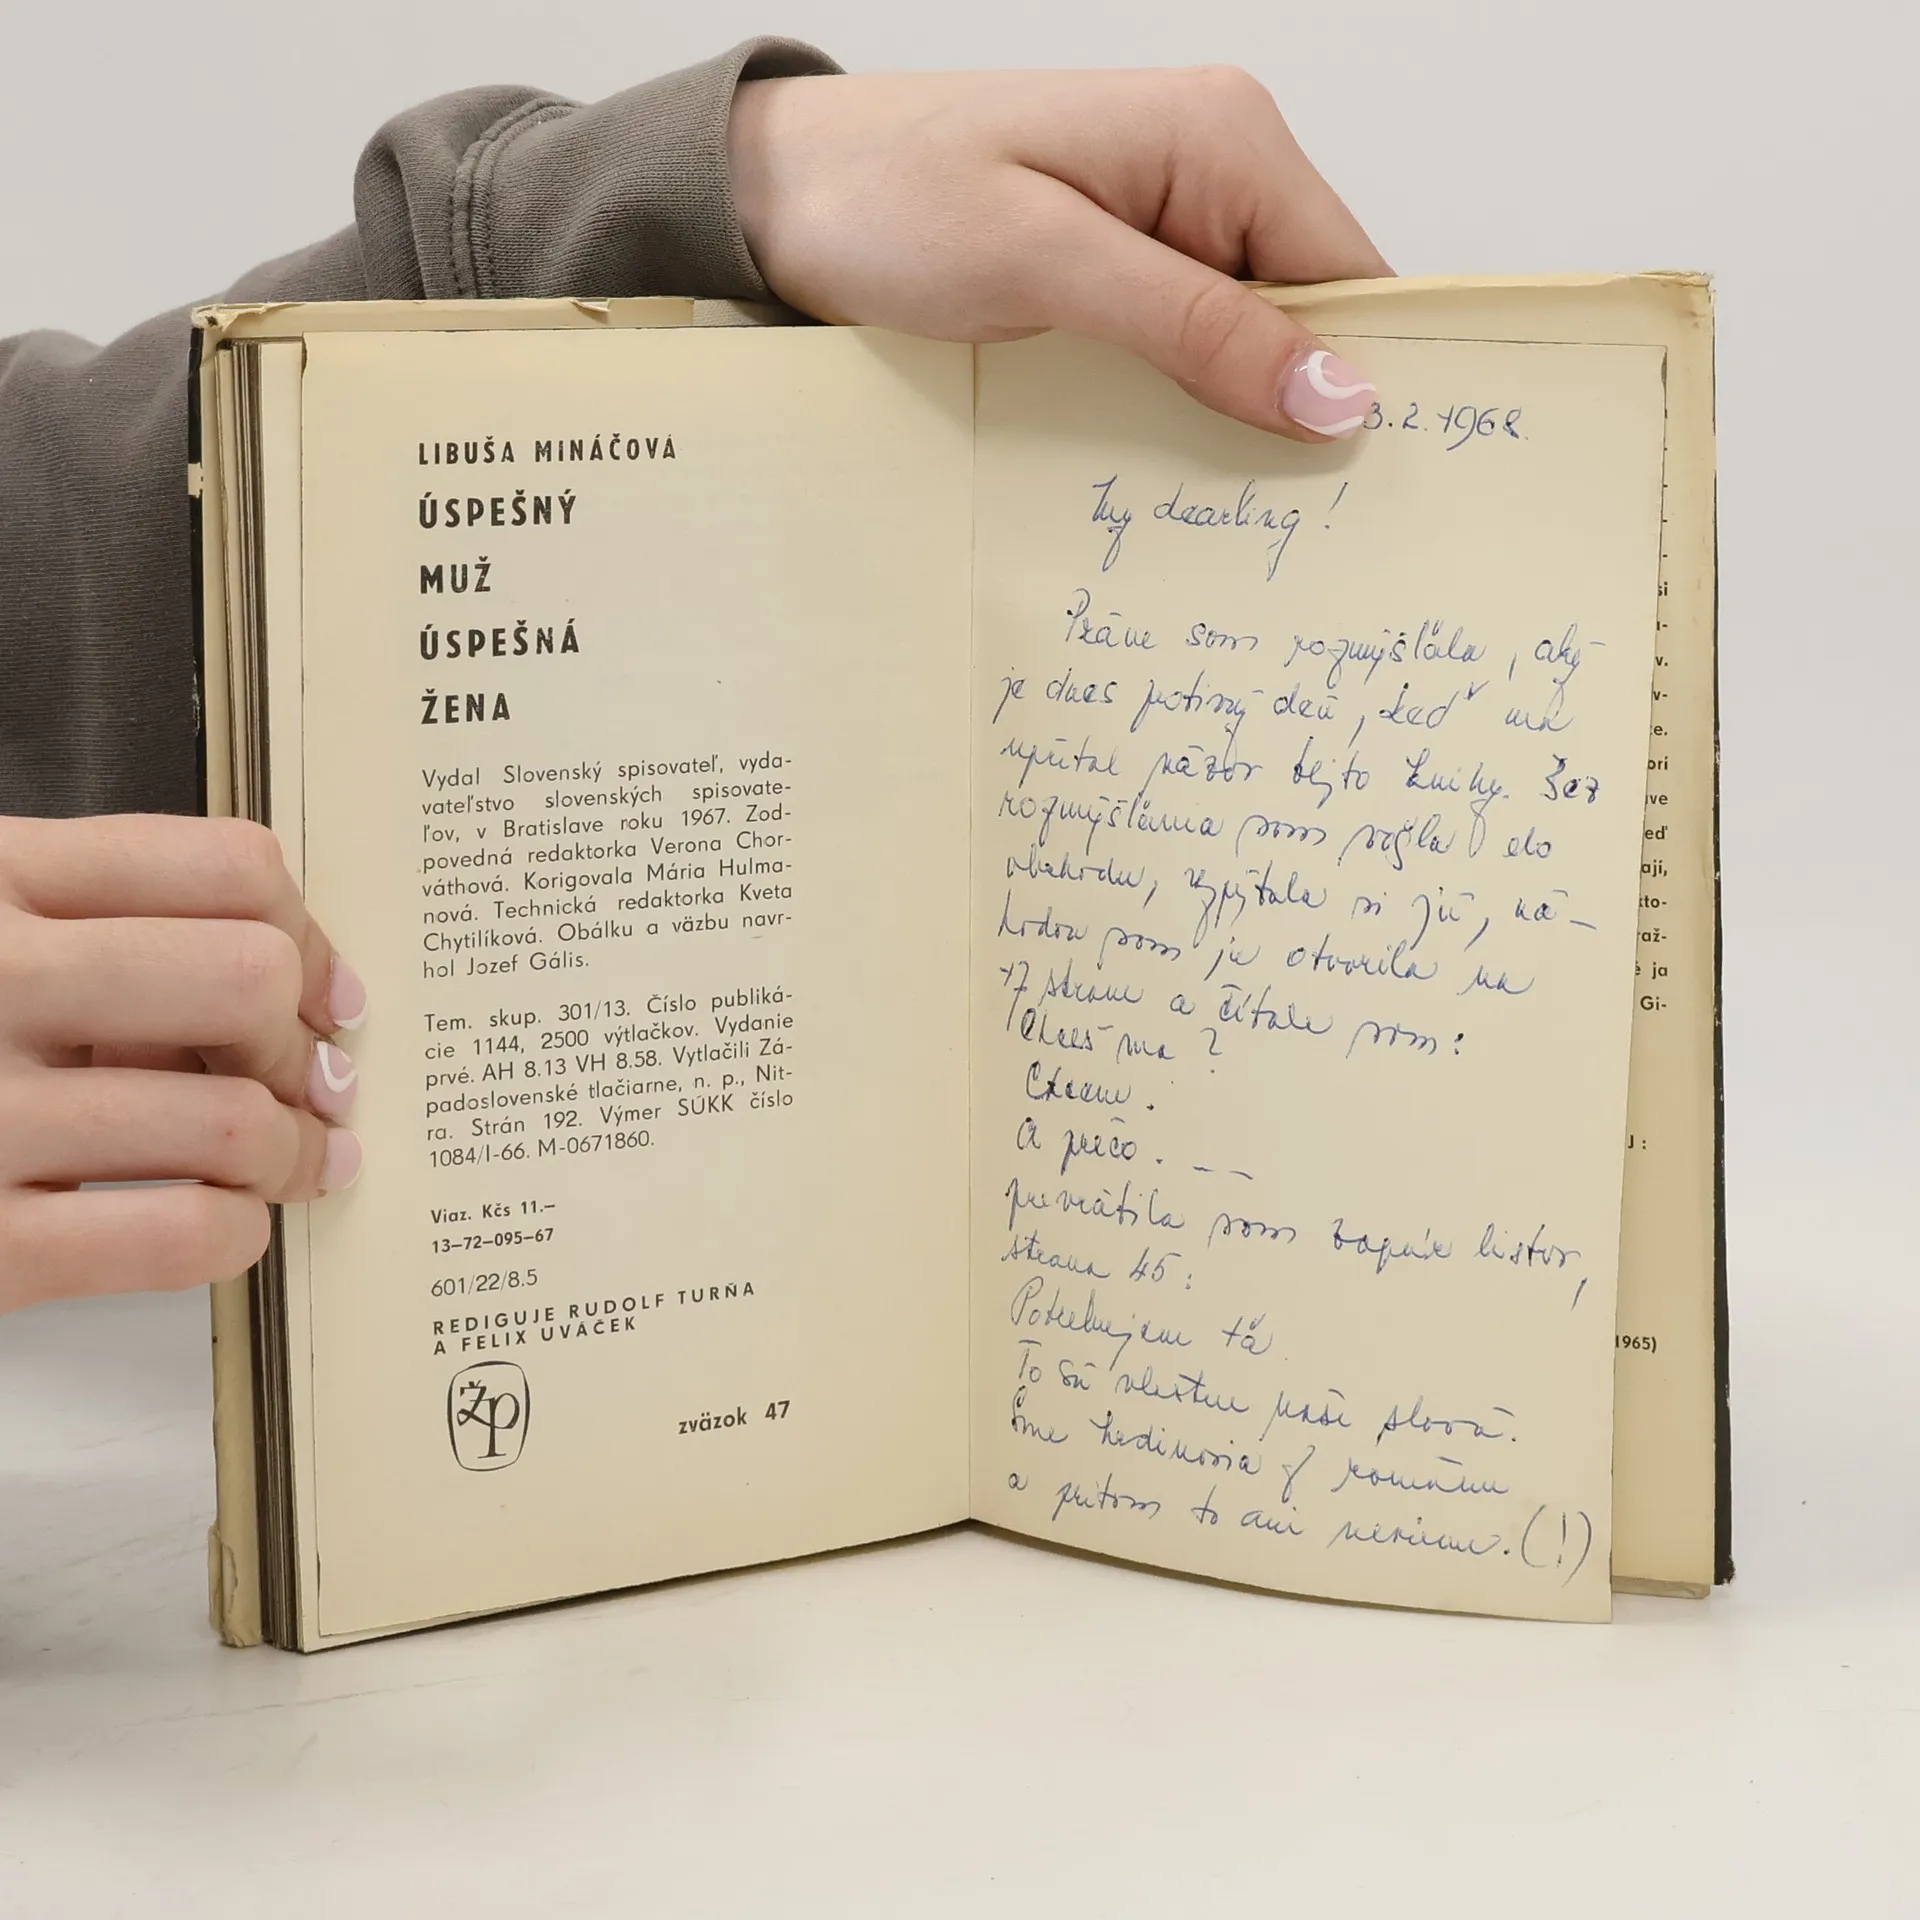 LIBUŠA MINÁČOVÁ
ÚSPEŠNÝ
MUŽ
ÚSPEŠNÁ
ŽENA
Vydal Slovenský spisovateľ, vyda-
vateľstvo slovenských spisovate-
ľov, v Bratislave roku 1967. Zod-
povedná redaktorka Verona Chor-
váthová. Korigovala Mária Hulma-
nová. Technická redaktorka Kveta
Chytilíková. Obálku a väzbu navr-
hol Jozef Gális.
Tem. skup. 301/13. Číslo publiká-
cie 1144, 2500 výtlačkov. Vydanie
prvé. AH 8.13 VH 8.58. Vytlačili Zá-
padoslovenské tlačiarne, n. p., Nit-
ra. Strán 192. Výmer SÚKK číslo
1084/I-66. M-0671860.
Viaz. Kčs 11.–
13–72–095–67
601/22/8.5
REDIGUJE RUDOLF TURŇA
A FELIX UVÁČEK
ŽP
zväzok 47
3.2.1968.
My dearling!
Práve som rozmýšľala, aký
je dnes potivný deň, keď ma
upútal názov tejto knihy. Bez
rozmýšľania som vošla do
obchodu, vypýtala si ju, ná-
hodou som ju otvorila na
17 strane a čítala som:
Chceš ma?
Chcem.
A prečo. – –
prevrátila som zopár listov,
strana 45:
Potrebujem ťa
To sú vlastne naše slová.
Sme hrdinovia z románu
a pritom to ani nevieme. (!)
si
v.
ori
eď
ajú,
kto-
raž-
ja
Gi-
J:
1965)